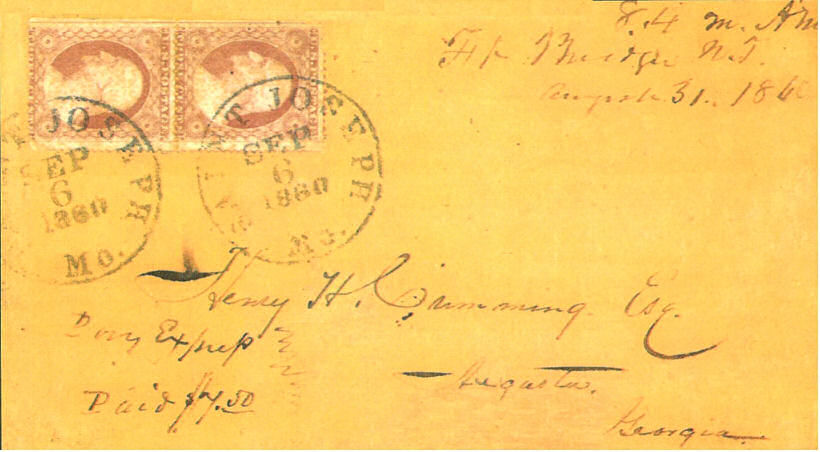 8.4 m.
Ft Bridger N.T.
August 31. 186
SAINT JOSEPH
SEP
6
1860
Mo.
T JOSEPH
SEP
6
1860
Mo.
Henry H. Cumming Esq.
Pony Express
Paid $7.50
Augusta.
Georgia